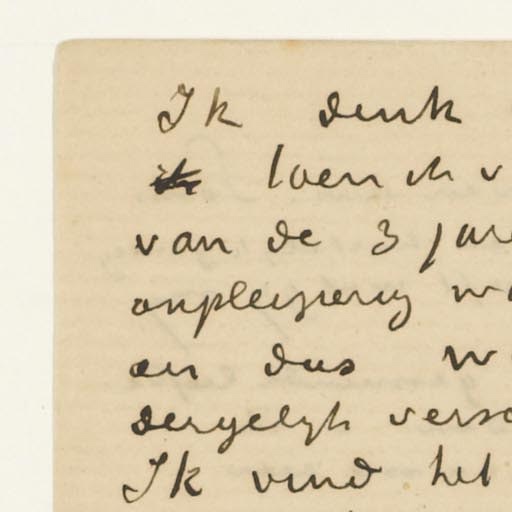 Ik denk
toen ik v
van de 3 jare
onpleizierig wa
en dus w
dergelijk versc
Ik vind het